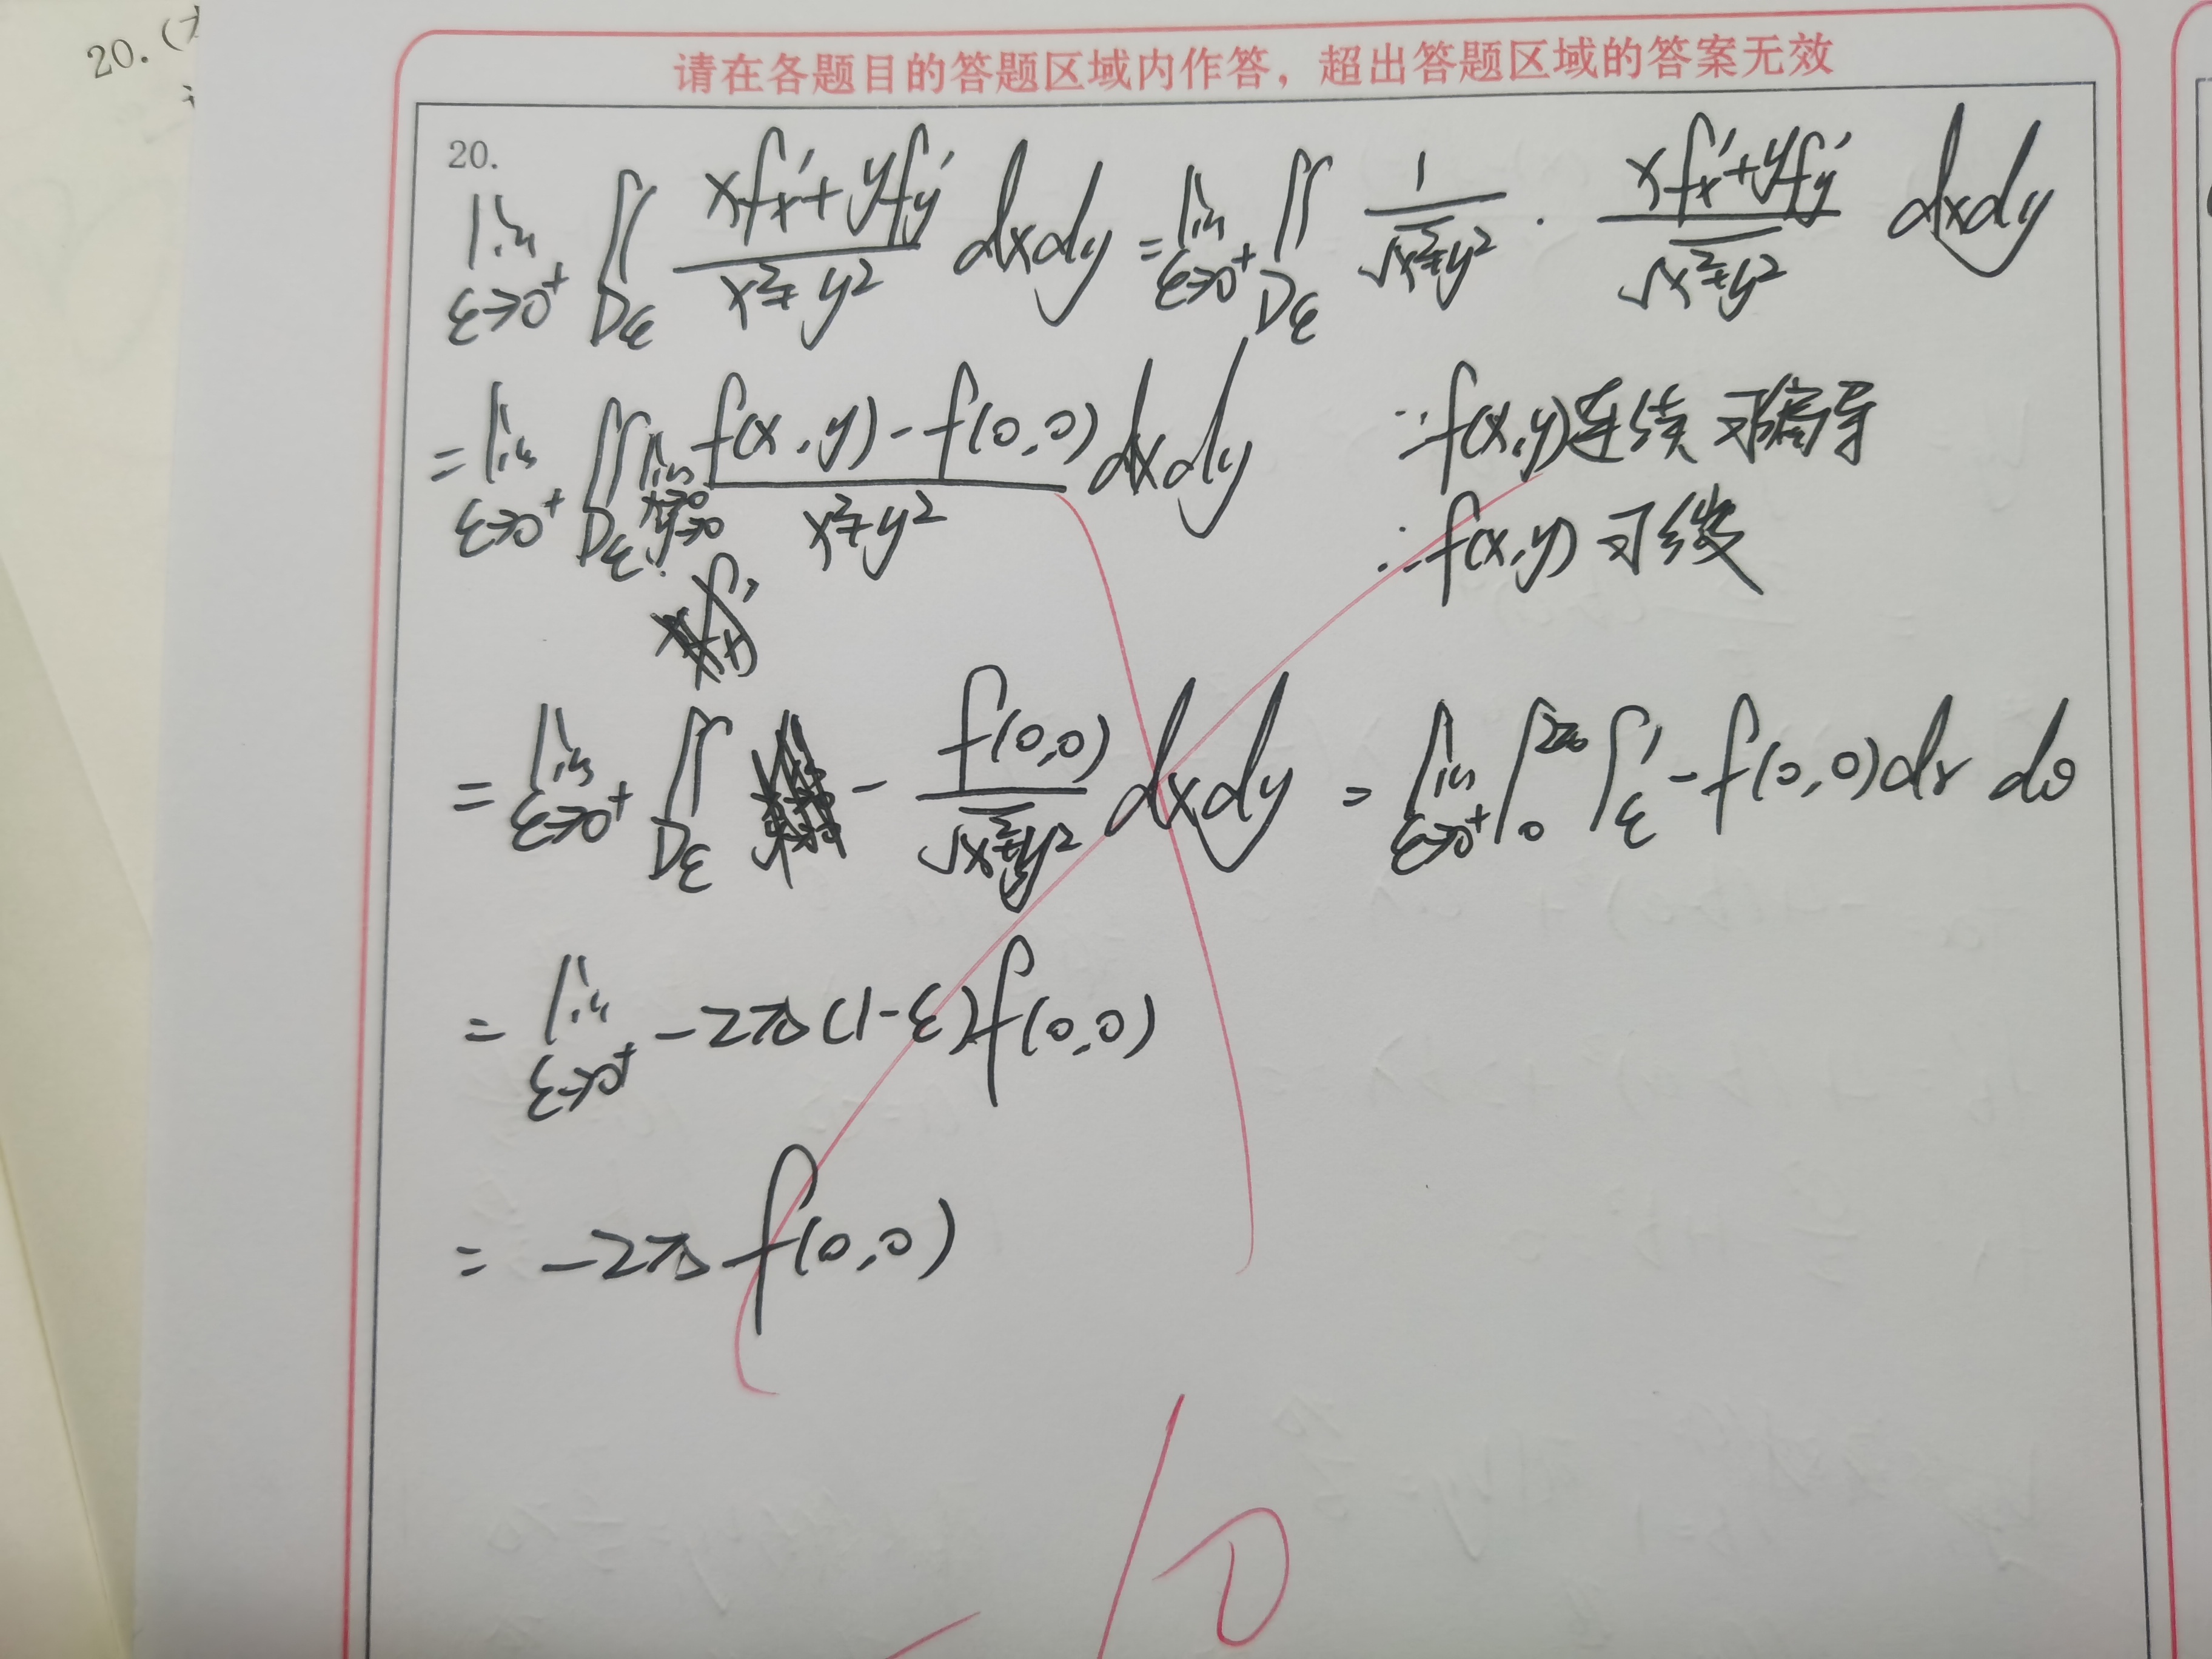 20.
请在各题目的答题区域内作答，超出答题区域的答案无效
20.
lim ε→0⁺ ∬_{Dε} (xf'x+yf'y)/(x²+y²) dxdy = lim ε→0⁺ ∬_{Dε} 1/√(x²+y²) · (xf'x+yf'y)/√(x²+y²) dxdy
= lim ε→0⁺ ∬_{Dε} lim x→0 y→0 (f(x,y)-f(0,0))/(x²+y²) dxdy ∵f(x,y)连续 可偏导
∴f(x,y)可微
= lim ε→0⁺ ∬_{Dε} - f(0,0)/√(x²+y²) dxdy = lim ε→0⁺ ∫₀^{2π} ∫_ε^1 -f(0,0)dr dθ
= lim ε→0⁺ -2π(1-ε)f(0,0)
= -2πf(0,0)